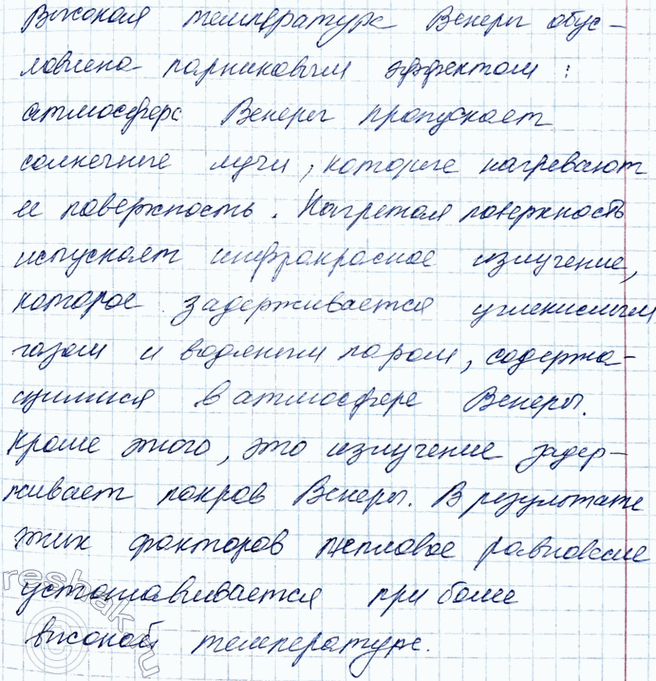 Высокая температура Венеры обус-
ловлена парниковым эффектом:
атмосфера Венеры пропускает
солнечные лучи, которые нагревают
ее поверхность. Нагретая поверхность
испускает инфракрасное излучение,
которое задерживается углекислым
газом и водяным паром, содержа-
щимися в атмосфере Венеры.
Кроме этого, это излучение задер-
живает покров Венеры. В результате
этих факторов тепловое равновесие
устанавливается при более
высокой температуре.
reshak.ru